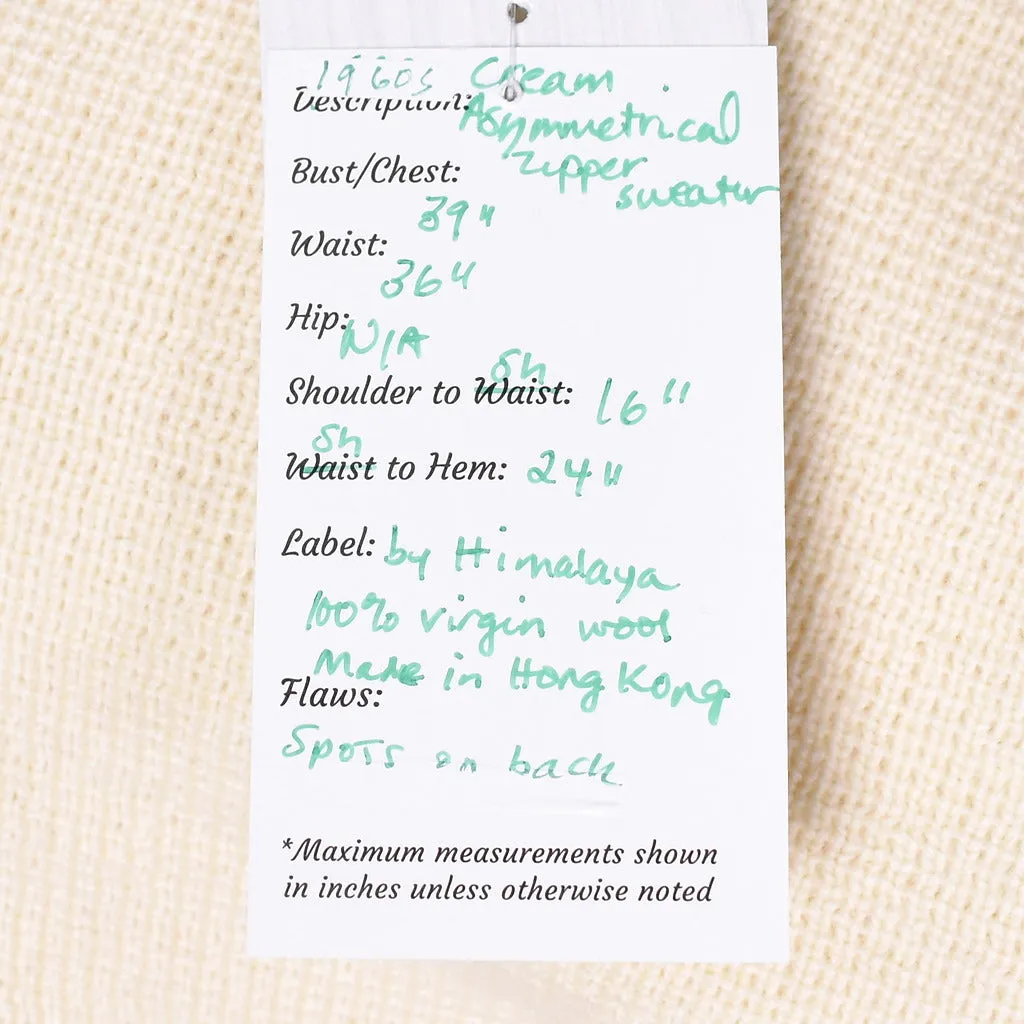 1960s Cream
Description: Asymmetrical
zipper
sweater
Bust/Chest:
39"
Waist:
36"
Hip:
N/A
Sh
Shoulder to Waist: 16"
Sh
Waist to Hem: 24"
Label: by Himalaya
100% virgin wool
Made in Hong Kong
Flaws:
Spots on back
*Maximum measurements shown
in inches unless otherwise noted